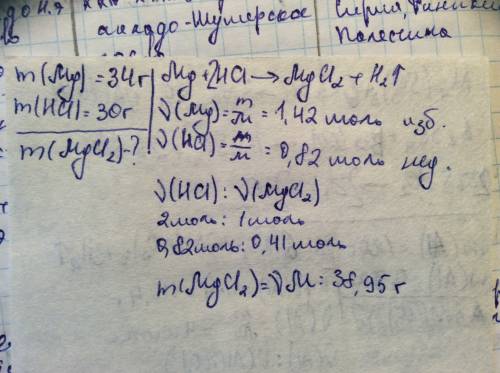 аккадо-Шумерское
Палестина
m(Mg) = 34г
Mg + 2HCl → MgCl₂ + H₂↑
m(HCl) = 30г
ν(Mg) = m/M = 1,42 моль изб.
m(MgCl₂) - ?
ν(HCl) = m/M = 0,82 моль нед.
ν(HCl) : ν(MgCl₂)
2моль : 1моль
0,82моль : 0,41 моль
m(MgCl₂) = νM = 38,95 г